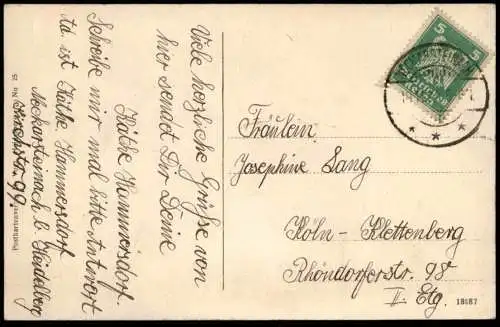 Viele herzliche Grüße von
hier sendet Dir Deine
Käthe Hammersdorf.
Schreibe mir mal bitte Antwort
da ist Käthe Hammersdorf
Neckarsteinach b. Heidelberg
99.
No 25
Fräulein
Josephine Lang
Köln - Klettenberg
Rhöndorferstr. 98
II. Etg.
18687
5
5